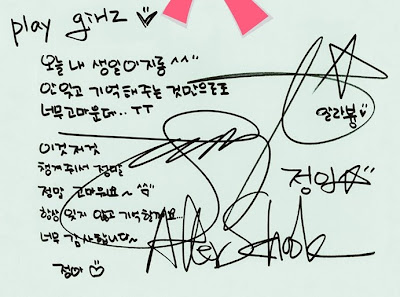 play girlz ♡
오늘 내 생일이지롱 ^^"
안 잊고 기억해 주는 것만으로도
너무 고마운데.. ㅜㅜ
이것저것
챙겨줘서 정말
정말 고마워요~ ^^
항상 잊지 않고 기억할게요...
너무 감사합니다~
정아 ♡
알라뷩 ♡
정아 ☆
After School